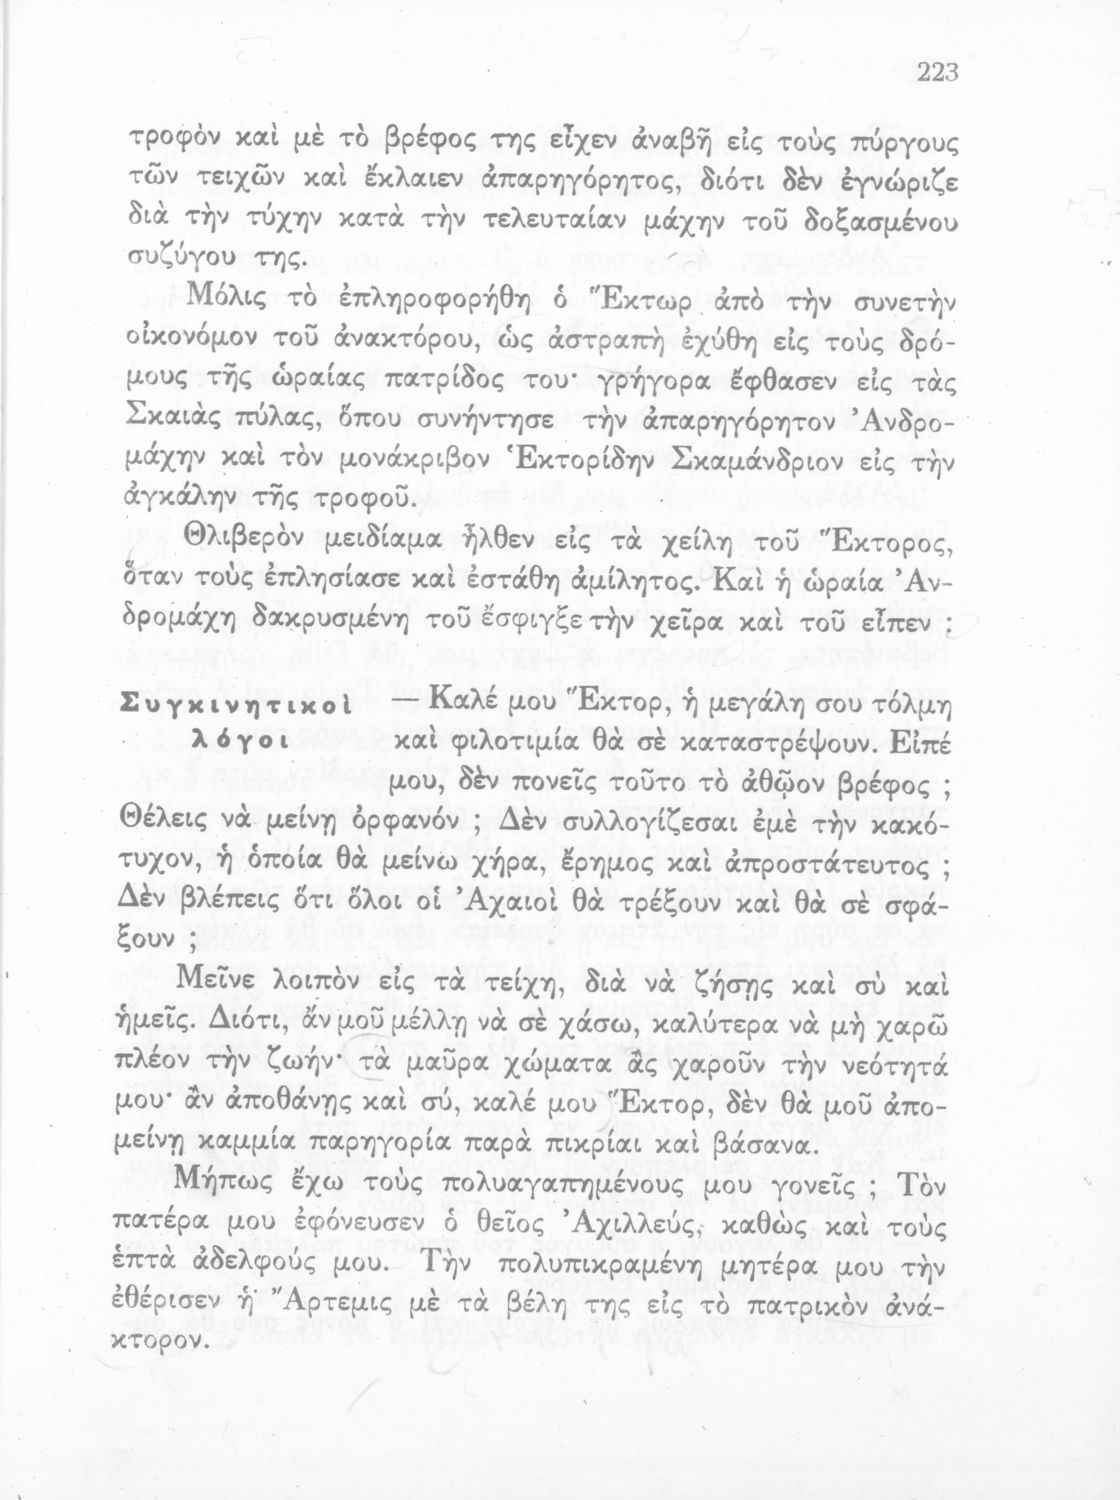 223
τροφὸν καὶ μὲ τὸ βρέφος της εἶχεν ἀναβῆ εἰς τοὺς πύργους
τῶν τειχῶν καὶ ἔκλαιεν ἀπαρηγόρητος, διότι δὲν ἐγνώριζε
διὰ τὴν τύχην κατὰ τὴν τελευταίαν μάχην τοῦ δοξασμένου
συζύγου της.
Μόλις τὸ ἐπληροφορήθη ὁ Ἕκτωρ ἀπὸ τὴν συνετὴν
οἰκονόμον τοῦ ἀνακτόρου, ὡς ἀστραπὴ ἐχύθη εἰς τοὺς δρό-
μους τῆς ὡραίας πατρίδος του· γρήγορα ἔφθασεν εἰς τὰς
Σκαιὰς πύλας, ὅπου συνήντησε τὴν ἀπαρηγόρητον Ἀνδρο-
μάχην καὶ τὸν μονάκριβον Ἑκτορίδην Σκαμάνδριον εἰς τὴν
ἀγκάλην τῆς τροφοῦ.
Θλιβερὸν μειδίαμα ἦλθεν εἰς τὰ χείλη τοῦ Ἕκτορος,
ὅταν τοὺς ἐπλησίασε καὶ ἐστάθη ἀμίλητος. Καὶ ἡ ὡραία Ἀν-
δρομάχη δακρυσμένη τοῦ ἔσφιγξε τὴν χεῖρα καὶ τοῦ εἶπεν :
Συγκινητικοὶ — Καλέ μου Ἕκτορ, ἡ μεγάλη σου τόλμη
λόγοι καὶ φιλοτιμία θὰ σὲ καταστρέψουν. Εἰπέ
μου, δὲν πονεῖς τοῦτο τὸ ἀθῷον βρέφος ;
Θέλεις νὰ μείνῃ ὀρφανόν ; Δὲν συλλογίζεσαι ἐμὲ τὴν κακό-
τυχον, ἡ ὁποία θὰ μείνω χήρα, ἔρημος καὶ ἀπροστάτευτος ;
Δὲν βλέπεις ὅτι ὅλοι οἱ Ἀχαιοὶ θὰ τρέξουν καὶ θὰ σὲ σφά-
ξουν ;
Μεῖνε λοιπὸν εἰς τὰ τείχη, διὰ νὰ ζήσῃς καὶ σὺ καὶ
ἡμεῖς. Διότι, ἂν μοῦ μέλλῃ νὰ σὲ χάσω, καλύτερα νὰ μὴ χαρῶ
πλέον τὴν ζωήν· τὰ μαῦρα χώματα ἂς χαροῦν τὴν νεότητά
μου· ἂν ἀποθάνῃς καὶ σύ, καλέ μου Ἕκτορ, δὲν θὰ μοῦ ἀπο-
μείνῃ καμμία παρηγορία παρὰ πικρίαι καὶ βάσανα.
Μήπως ἔχω τοὺς πολυαγαπημένους μου γονεῖς ; Τὸν
πατέρα μου ἐφόνευσεν ὁ θεῖος Ἀχιλλεύς, καθὼς καὶ τοὺς
ἑπτὰ ἀδελφούς μου. Τὴν πολυπικραμένη μητέρα μου τὴν
ἐθέρισεν ἡ Ἄρτεμις μὲ τὰ βέλη της εἰς τὸ πατρικὸν ἀνά-
κτορον.